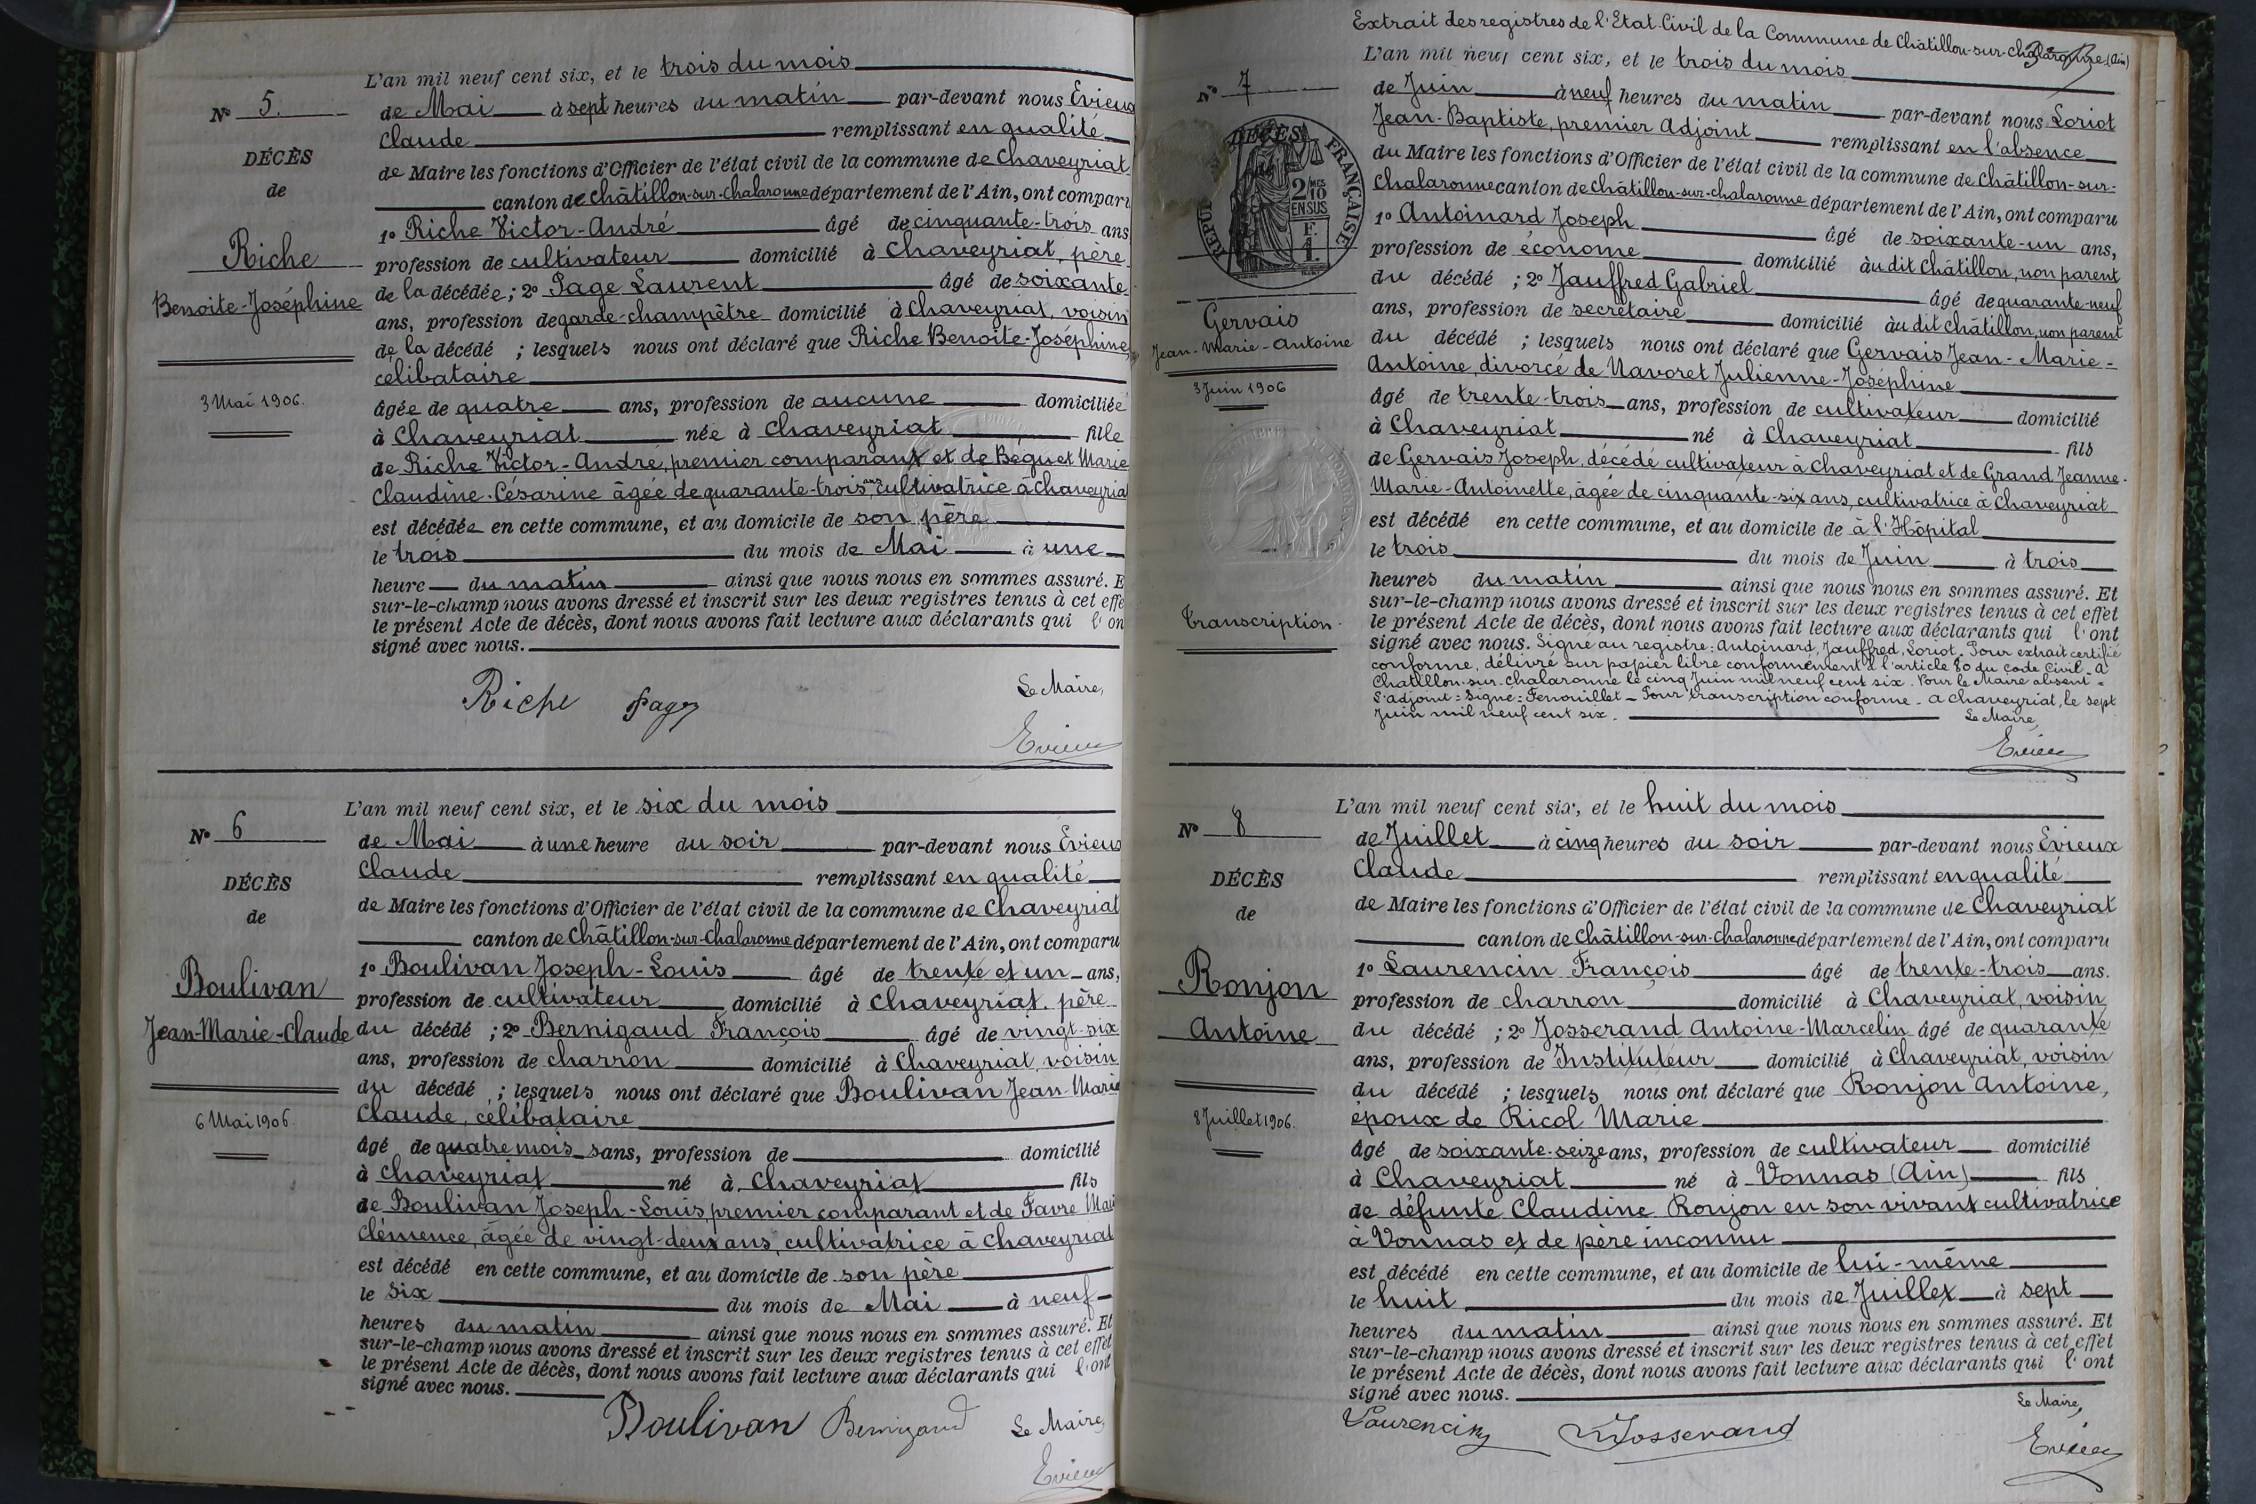 L'an mil neuf cent six, et le trois du mois
N° 5.
de Mai à sept heures du matin par-devant nous Evieux
Claude remplissant en qualité
DÉCÈS
de Maire les fonctions d'Officier de l'état civil de la commune de Chaveyriat
de
canton de Châtillon-sur-Chalaronne département de l'Ain, ont comparu
1° Riche Victor-André âgé de cinquante-trois ans
Riche
profession de cultivateur domicilié à Chaveyriat, père
Benoite-Joséphine
de la décédée ; 2° Page Laurent âgé de soixante
ans, profession de garde-champêtre domicilié à Chaveyriat, voisin
de la décédé ; lesquels nous ont déclaré que Riche Benoite-Joséphine
célibataire
3 Mai 1906.
âgée de quatre ans, profession de aucune domiciliée
à Chaveyriat née à Chaveyriat fille
de Riche Victor-André, premier comparant et de Béguet Marie
Claudine-Césarine âgée de quarante-trois ans cultivatrice à Chaveyriat
est décédée en cette commune, et au domicile de son père
le trois du mois de Mai à une
heure du matin ainsi que nous nous en sommes assuré. E
sur-le-champ nous avons dressé et inscrit sur les deux registres tenus à cet effe
le présent Acte de décès, dont nous avons fait lecture aux déclarants qui l'on
signé avec nous.
Riche Page
Le Maire,
Evieux
L'an mil neuf cent six, et le six du mois
N° 6
de Mai à une heure du soir par-devant nous Evieux
Claude remplissant en qualité
DÉCÈS
de Maire les fonctions d'Officier de l'état civil de la commune de Chaveyriat
de
canton de Châtillon-sur-Chalaronne département de l'Ain, ont comparu
1° Boulivan Joseph-Louis âgé de trente et un ans,
Boulivan
profession de cultivateur domicilié à Chaveyriat. père
Jean-Marie-Claude
du décédé ; 2° Bernigaud François âgé de vingt-six
ans, profession de charron domicilié à Chaveyriat, voisin
du décédé ; lesquels nous ont déclaré que Boulivan Jean Marie
Claude, célibataire
6 Mai 1906.
âgé de quatre mois sans, profession de domicilié
à Chaveyriat né à Chaveyriat fils
de Boulivan Joseph-Louis, premier comparant et de Favre Mari
Clémence, âgée de vingt-deux ans, cultivatrice à Chaveyriat
est décédé en cette commune, et au domicile de son père
le six du mois de Mai à neuf
heures du matin ainsi que nous nous en sommes assuré. Et
sur-le-champ nous avons dressé et inscrit sur les deux registres tenus à cet effet
le présent Acte de décès, dont nous avons fait lecture aux déclarants qui l'ont
signé avec nous.
Boulivan Bernigaud
Le Maire,
Evieux
Extrait des registres de l'Etat-Civil de la Commune de Châtillon-sur-Chalaronne (Ain)
L'an mil neuf cent six, et le trois du mois
N° 7
de Juin à neuf heures du matin par-devant nous Loriot
Jean-Baptiste, premier Adjoint remplissant en l'absence
DÉCÈS
du Maire les fonctions d'Officier de l'état civil de la commune de Châtillon-sur-
Chalaronne canton de Châtillon-sur-Chalaronne département de l'Ain, ont comparu
FRANÇAISE
2/10 EN SUS
F. 1.
1° Antoinard Joseph âgé de soixante-un ans,
profession de économe domicilié au dit Châtillon, non parent
du décédé ; 2° Jauffred Gabriel âgé de quarante-neuf
ans, profession de secrétaire domicilié au dit Châtillon, non parent
Gervais
Jean-Marie-Antoine
du décédé ; lesquels nous ont déclaré que Gervais Jean-Marie-
Antoine, divorcé de Navoret Julienne-Joséphine
3 Juin 1906
âgé de trente-trois ans, profession de cultivateur domicilié
à Chaveyriat né à Chaveyriat fils
de Gervais Joseph, décédé cultivateur à Chaveyriat et de Grand Jeanne-
Marie-Antoinette, âgée de cinquante-six ans, cultivatrice à Chaveyriat
est décédé en cette commune, et au domicile de à l'Hôpital
le trois du mois de Juin à trois
heures du matin ainsi que nous nous en sommes assuré. Et
sur-le-champ nous avons dressé et inscrit sur les deux registres tenus à cet effet
Transcription.
le présent Acte de décès, dont nous avons fait lecture aux déclarants qui l'ont
signé avec nous. Signé au registre : Antoinard, Jauffred, Loriot. Pour extrait certifié
conforme, délivré sur papier libre conformément à l'article 80 du Code Civil. A
Châtillon-sur-Chalaronne le cinq Juin mil neuf cent six. Pour le Maire absent =
L'adjoint = Signé = Fenouillet – Pour transcription conforme. A Chaveyriat, le sept
Juin mil neuf cent six.
Le Maire,
Evieux
L'an mil neuf cent six, et le huit du mois
N° 8
de Juillet à cinq heures du soir par-devant nous Evieux
Claude remplissant en qualité
DÉCÈS
de Maire les fonctions d'Officier de l'état civil de la commune de Chaveyriat
de
canton de Châtillon-sur-Chalaronne département de l'Ain, ont comparu
1° Laurencin François âgé de trente-trois ans.
Ronjon
profession de charron domicilié à Chaveyriat, voisin
Antoine
du décédé ; 2° Josserand Antoine-Marcelin âgé de quarante
ans, profession de Instituteur domicilié à Chaveyriat, voisin
du décédé ; lesquels nous ont déclaré que Ronjon Antoine,
8 Juillet 1906.
époux de Ricol Marie
âgé de soixante-seize ans, profession de cultivateur domicilié
à Chaveyriat né à Vonnas (Ain) fils
de défunte Claudine Ronjon en son vivant cultivatrice
à Vonnas et de père inconnu
est décédé en cette commune, et au domicile de lui-même
le huit du mois de Juillet à sept
heures du matin ainsi que nous nous en sommes assuré. Et
sur-le-champ nous avons dressé et inscrit sur les deux registres tenus à cet effet
le présent Acte de décès, dont nous avons fait lecture aux déclarants qui l'ont
signé avec nous.
Le Maire,
Laurencin Josserand
Evieux